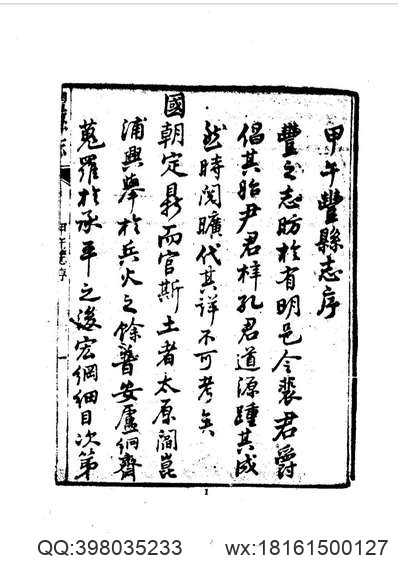 甲午豐縣志序
豐之志昉於有明邑令裴君爵
倡其始尹君梓孔君道源踵其成
然時閱曠代其詳不可考矣
國朝定鼎而官斯土者太原閻崑
浦興舉於兵火之餘普安盧絅齊
蒐羅於承平之後宏綱細目次第
1
QQ:398035233 wx:18161500127